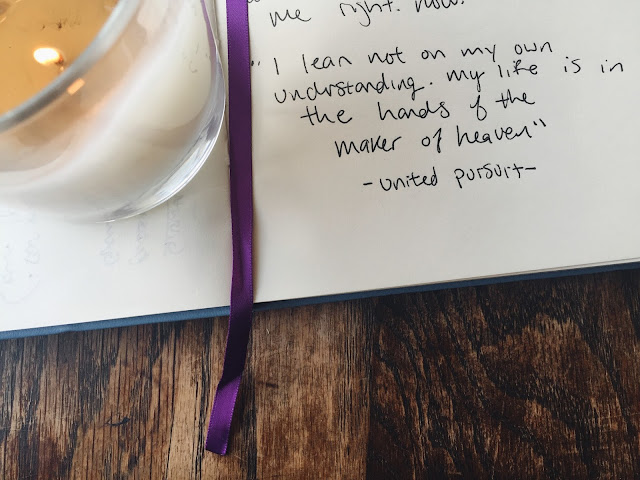 me right now.
"I lean not on my own
understanding. my life is in
the hands of the
maker of heaven"
-united pursuit-